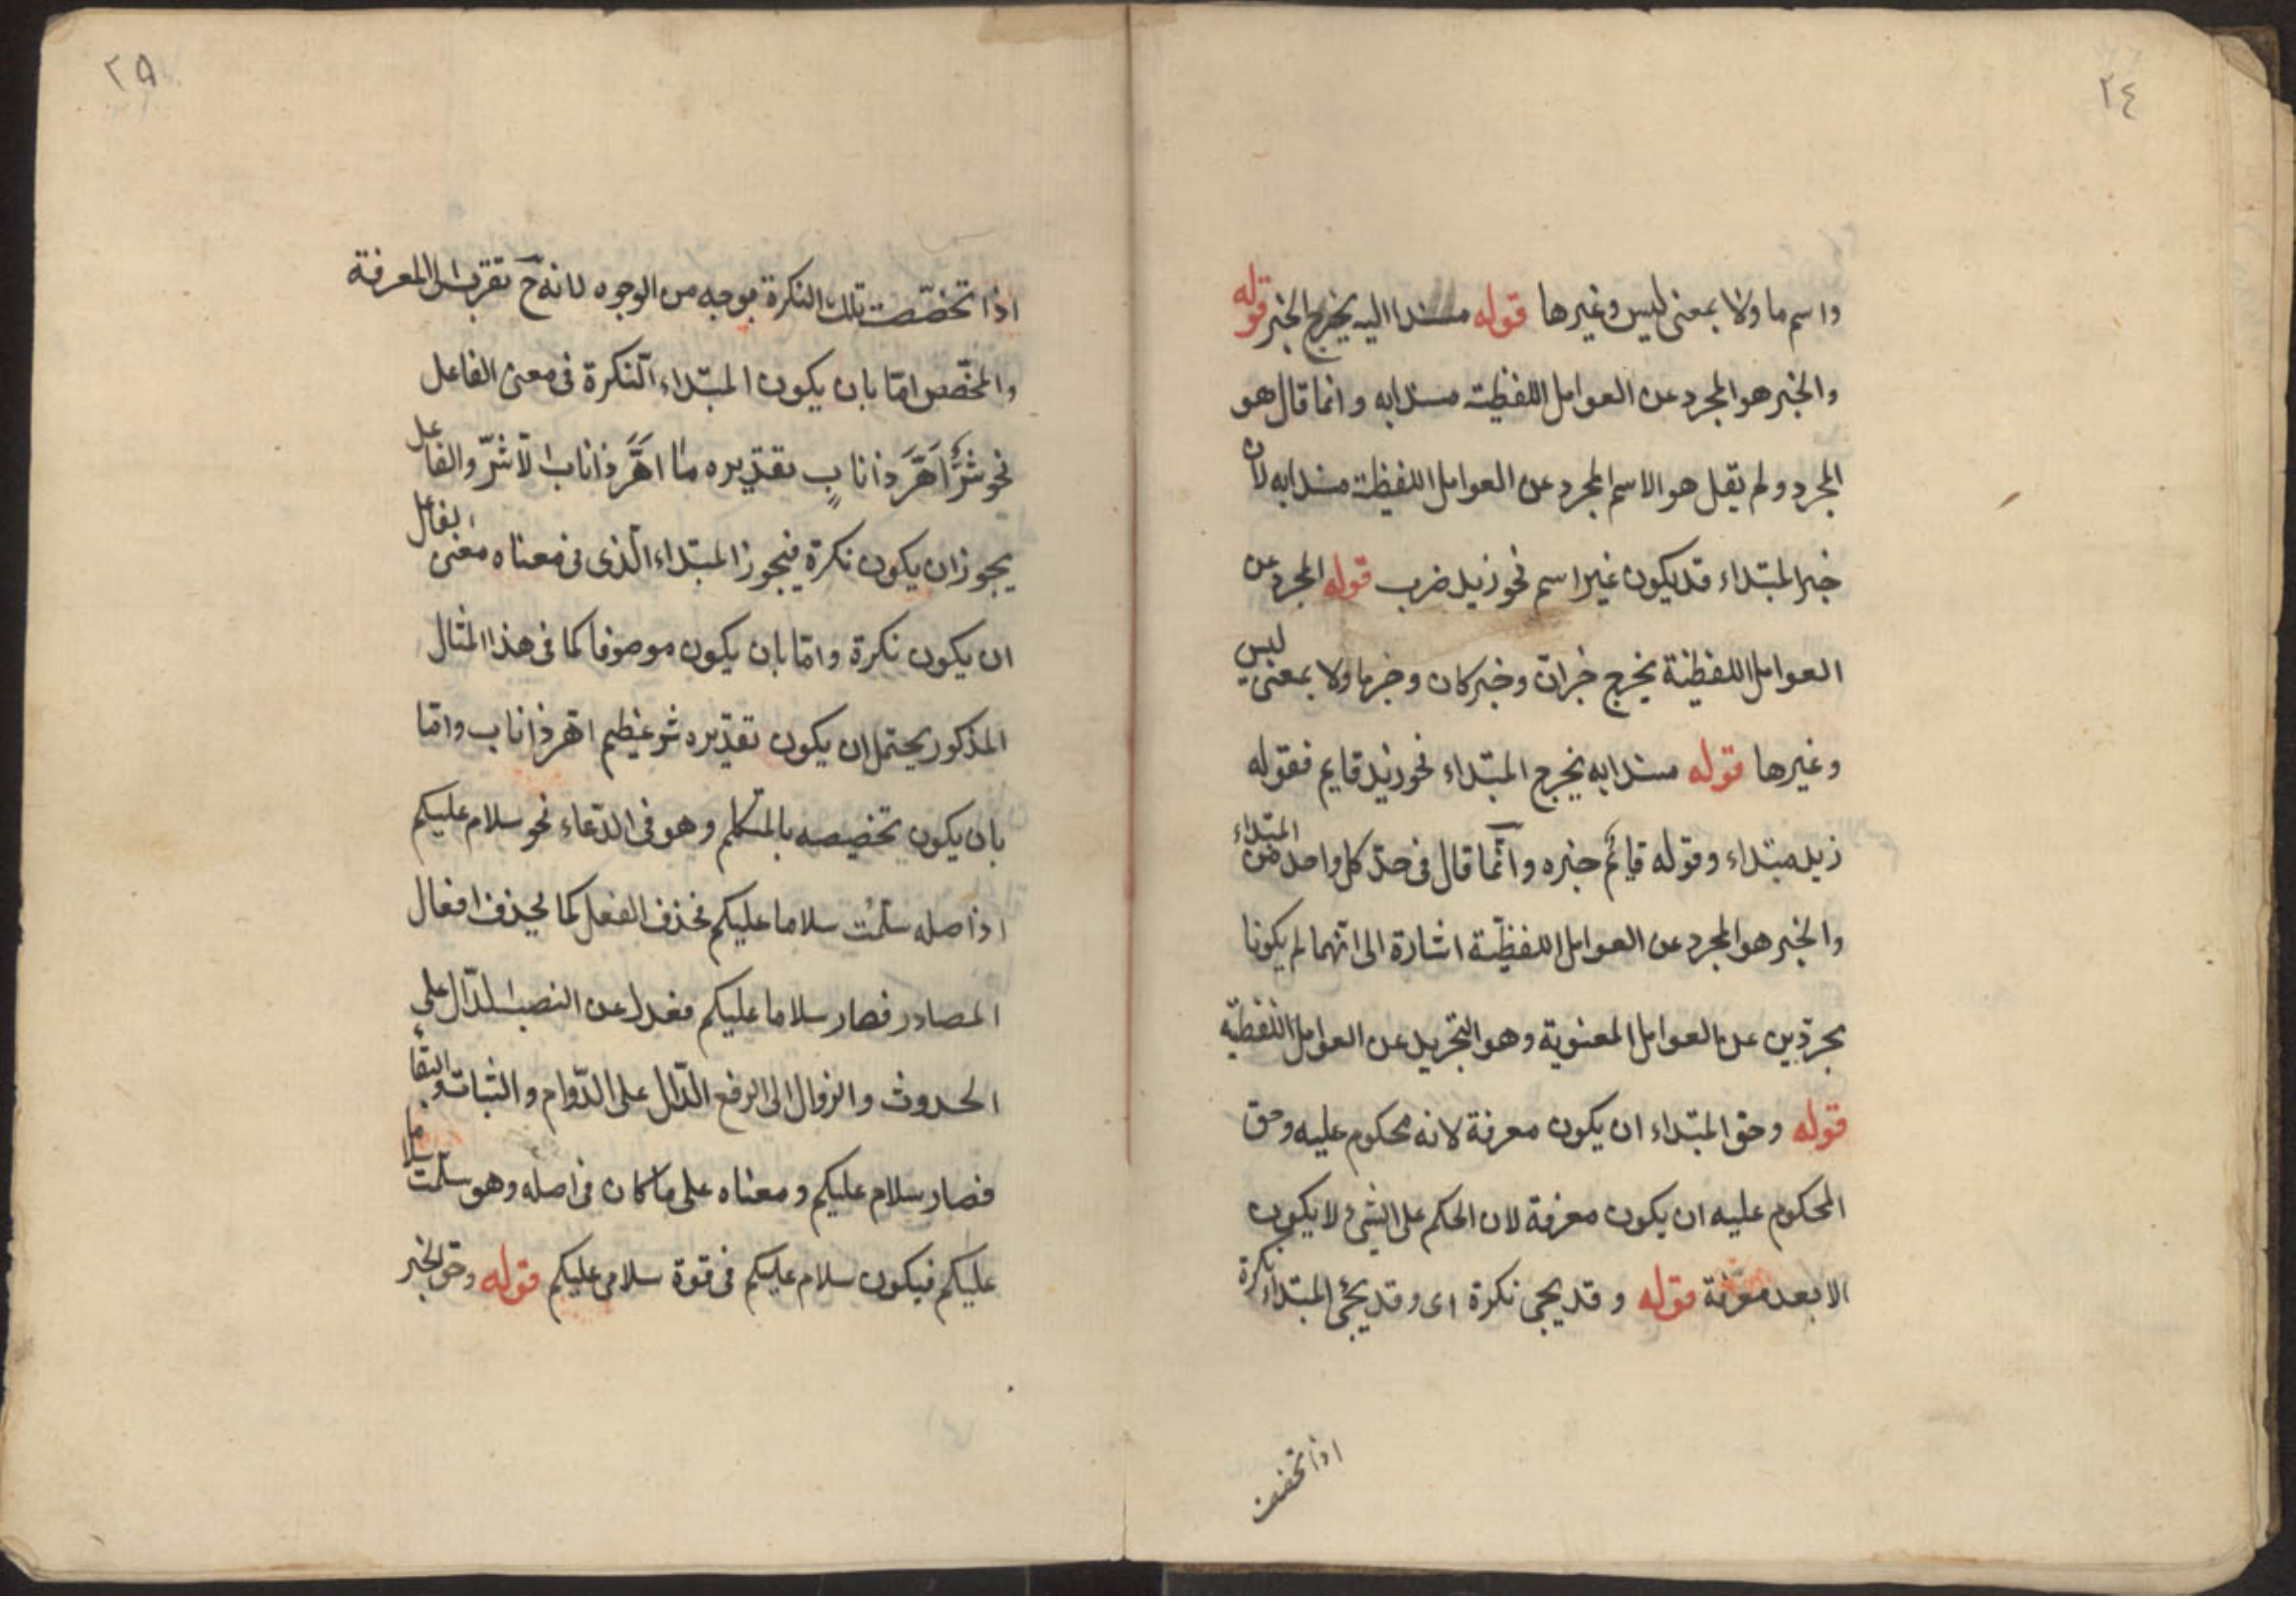 ٢٤
واسم ما ولا بمعنى ليس وغيرها قوله مسندا اليه يخرج الخبر قوله
والخبر هو المجرد عن العوامل اللفظية مسندا به وانما قال هو
المجرد ولم يقل هو الاسم المجرد عن العوامل اللفظية مسندا به لان
خبر المبتداء قد يكون غير اسم نحو زيد ضرب قوله المجرد عن
العوامل اللفظية يخرج خبر ان وخبر كان وخبر ما ولا بمعنى ليس
وغيرها قوله مسندا به يخرج المبتداء نحو زيد قايم فقوله
زيد مبتداء وقوله قائم خبره وانّما قال فى حدّ كل واحد من المبتداء
والخبر هو المجرد عن العوامل اللفظيّة اشارة الى انّهما لم يكونا
مجرّدين عن العوامل المعنوية وهو التجريد عن العوامل اللفظيّه
قوله وحق المبتداء ان يكون معرفة لانه محكوم عليه وحق
المحكوم عليه ان يكون معرفة لان الحكم على الشئ لا يكون
الا بعد معرفة قوله وقد يجى نكرة اى وقد يجئ المبتداء نكرة
اذا تخصت
٢٥
اذا تخصّصت تلك النكرة بوجه من الوجوه لانه ح تقرب الى المعرفة
والمخصّص امّا بان يكون المبتداء النّكرة فى معنى الفاعل
نحو شرٌّ اَهَرَّ ذا نابٍ تقديره ما اهرّ ذا ناب الّا شرّ والفاعل
يجوز ان يكون نكرة فيجوز المبتداء الّذى فى معناه معنى الفاعل
ان يكون نكرة وامّا بان يكون موصوفا كما فى هذا المثال
المذكور يحتمل ان يكون تقديره شر عظيم اهرّ ذا ناب وامّا
بان يكون تخصيصه بالمتكلم وهو فى الدّعاء نحو سلام عليكم
اذ اصله سلّمت سلاما عليكم فحذف الفعل كما يحذف افعال
المصادر فصار سلاما عليكم فعدل عن النصب الدّال على
الحدوث والزوال الى الرفع الدّال على الدّوام والثبات والبقاء
فصار سلام عليكم ومعناه على ما كان فى اصله وهو سلّمت سلاما
عليكم فيكون سلام عليكم فى قوة سلامى عليكم قوله وحق الخبر